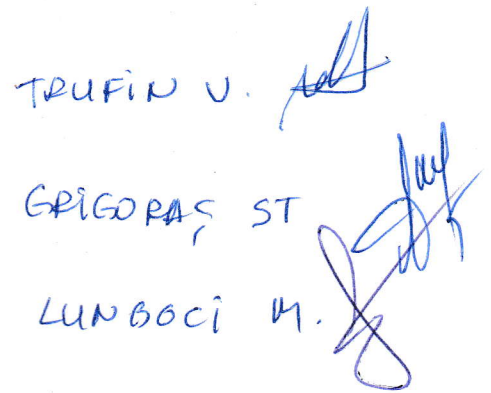 TRUFIN V.
GRIGORAȘ ST
LUNBOCI M.